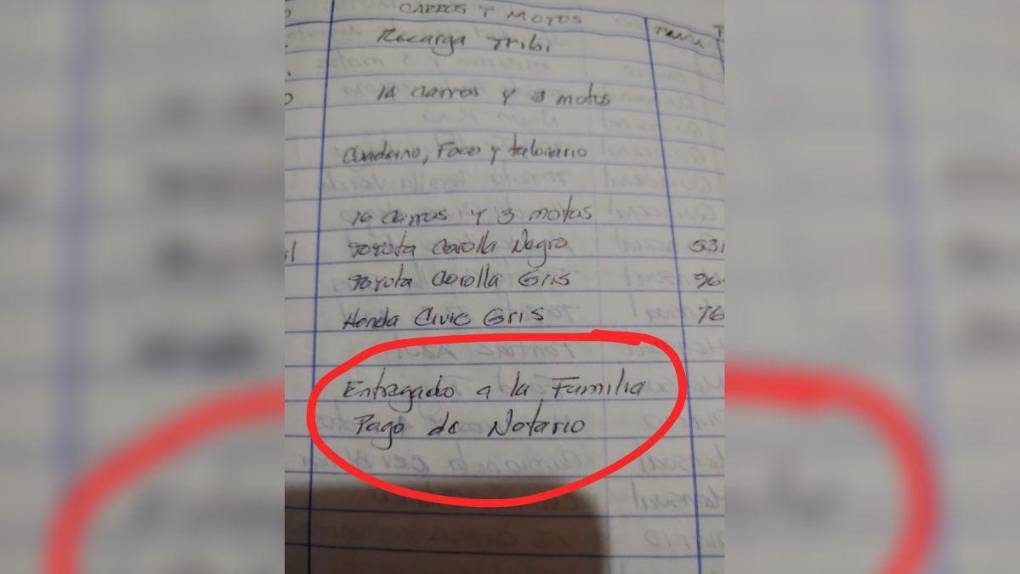 CARROS Y MOTOS
Recarga Tribi
14 carros y 3 motos
Cuaderno, Foco y talonario
16 carros y 3 motos
Toyota Corolla Negro 531
Toyota Corolla Gris 96
Honda Civic Gris 76
Entregado a la Familia
Pago de Notario